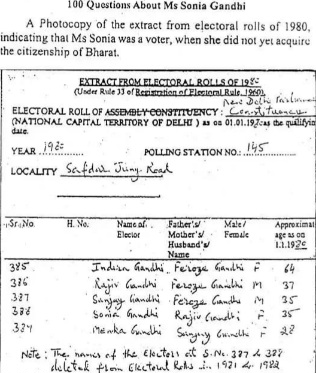 100 Questions About Ms Sonia Gandhi
A Photocopy of the extract from electoral rolls of 1980,
indicating that Ms Sonia was a voter, when she did not yet acquire
the citizenship of Bharat.
EXTRACT FROM ELECTORAL ROLLS OF 1980
(Under Rule 33 of Registration of Electoral Rule, 1960)
New Delhi Parliamen
ELECTORAL ROLL OF ASSEMBLY CONSTITUENCY : Constituency
(NATIONAL CAPITAL TERRITORY OF DELHI ) as on 01.01.1980 as the qualifyin
date.
YEAR 1980 POLLING STATION NO.: 145
LOCALITY Safdar Jung Road
Sr. No. H. No. Name of Elector Father's/ Mother's/ Husband's/ Name Male/ Female Approximat age as on 1.1.1980
385 Indira Gandhi Feroze Gandhi F 64
386 Rajiv Gandhi Feroze Gandhi M 37
387 Sanjay Gandhi Feroze Gandhi M 35
388 Sonia Gandhi Rajiv Gandhi F 35
389 Menka Gandhi Sanjay Gandhi F 28
Note : The names of the Electors at S.No. 387 & 388
deleted from Electoral Rolls in 1981 & 1982